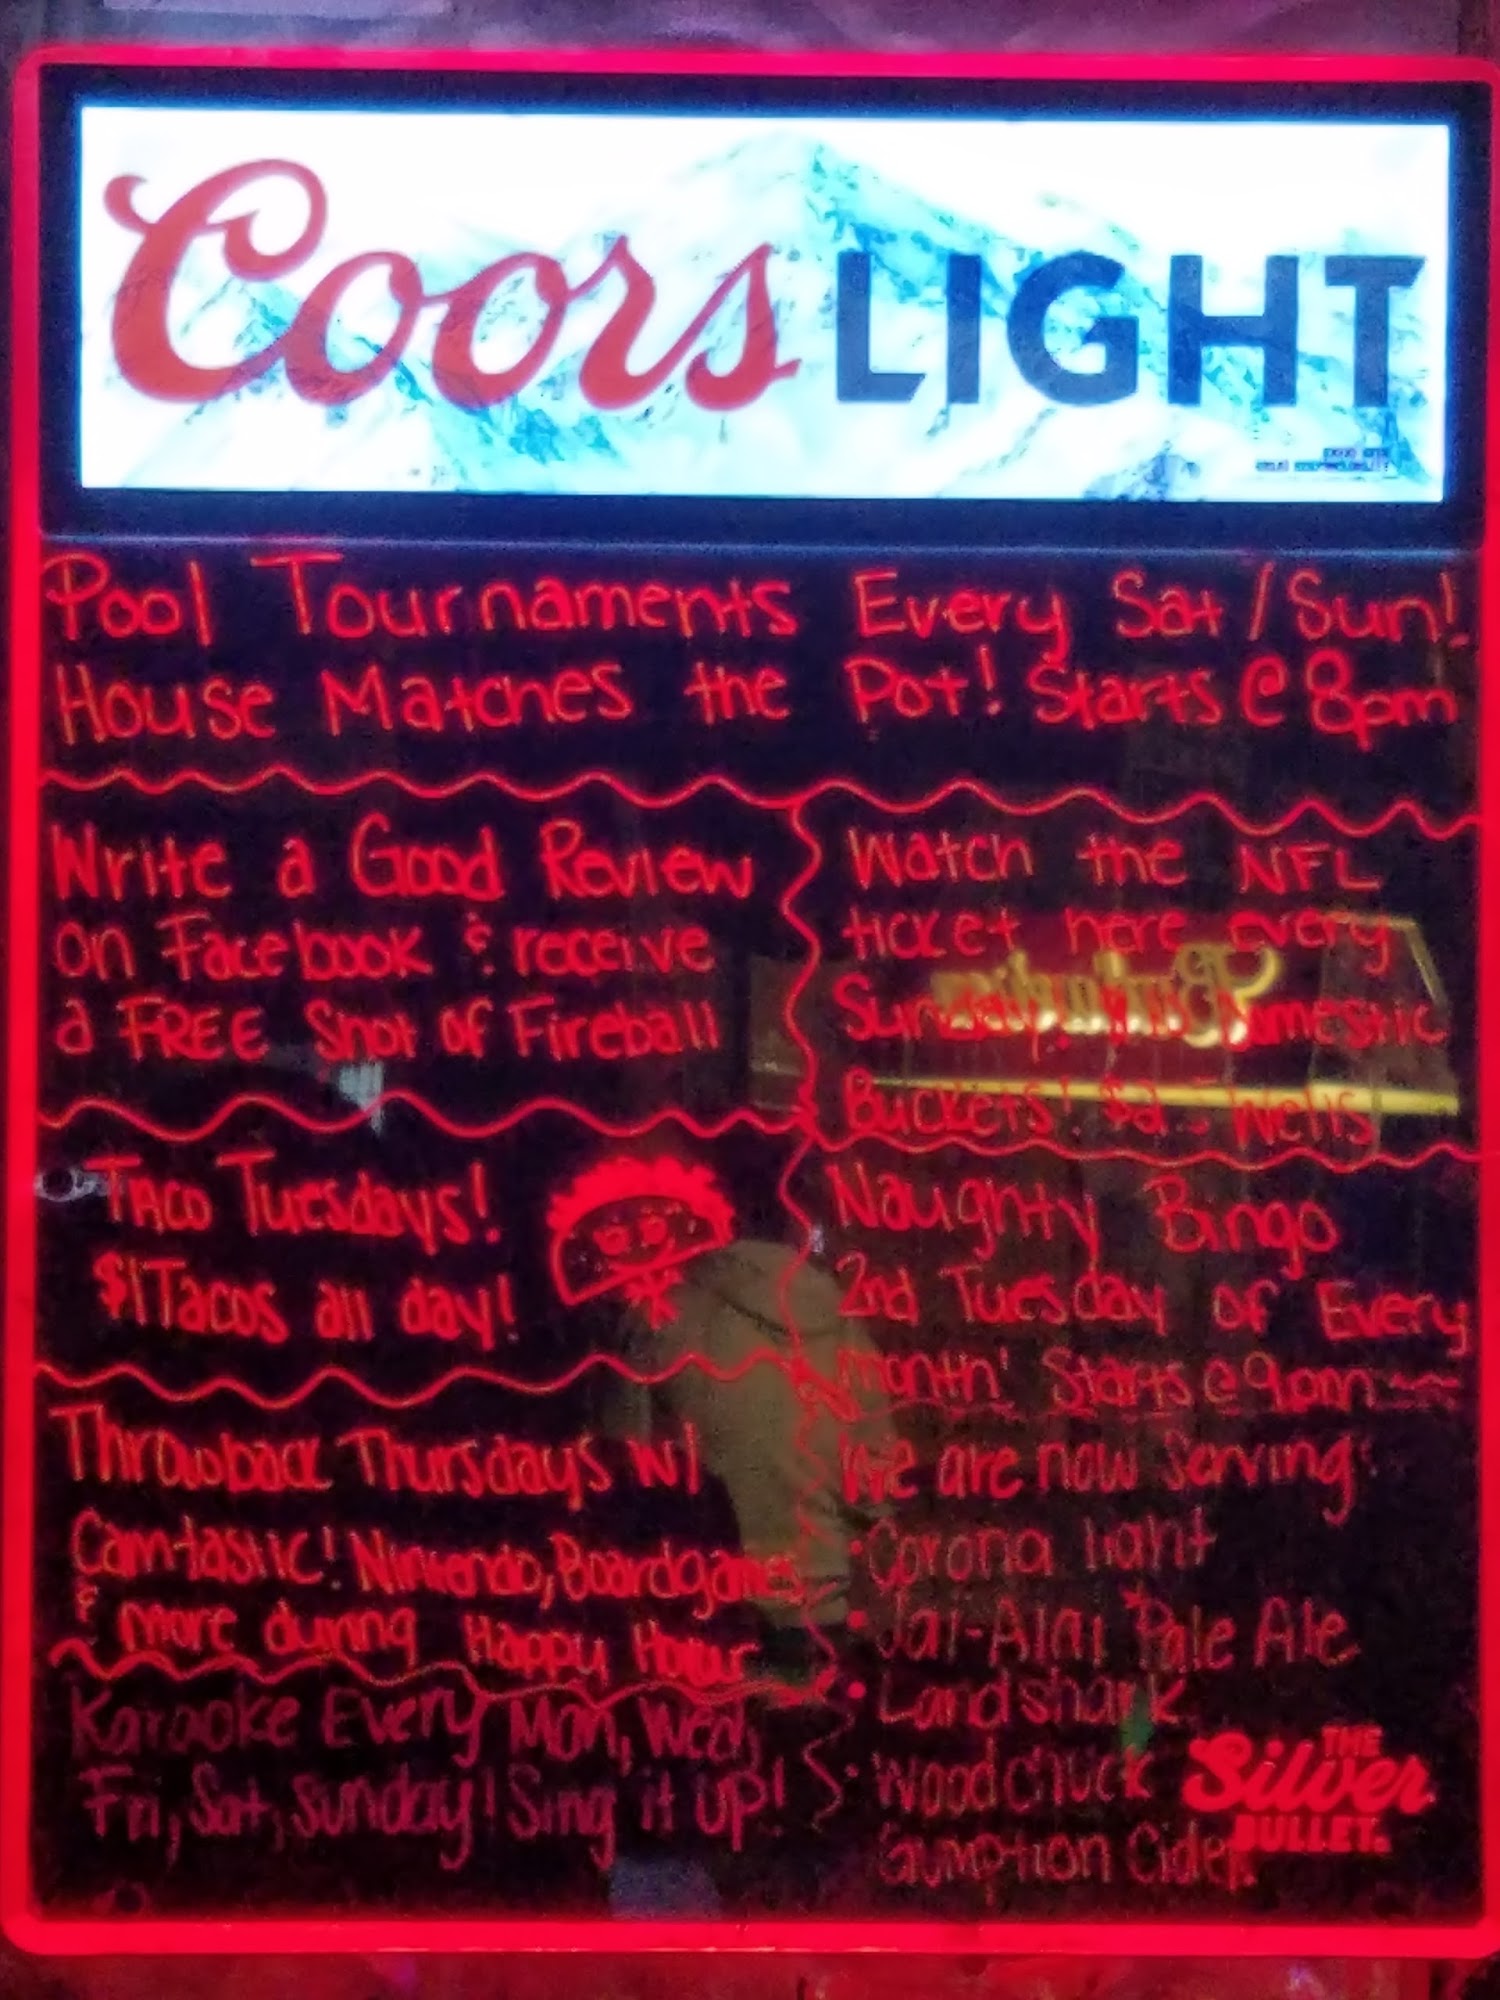 Coors LIGHT
Pool Tournaments Every Sat / Sun!
House Matches the Pot! Starts @ 8pm
Write a Good Review
on Facebook & receive
a FREE Shot of Fireball
Watch the NFL
ticket here every
Sunday! Domestic
Buckets! $2 Wells
Taco Tuesdays!
$1 Tacos all day!
Naughty Bingo
2nd Tuesday of Every
month! Starts @ 9pm
Throwback Thursdays w/
Cam-tastic! Nintendo, Boardgames
& more during Happy Hour
Karaoke Every Mon, Wed,
Fri, Sat, Sunday! Sing it up!
We are now Serving:
• Corona light
• Jai-Alai Pale Ale
• Landshark
• Woodchuck
Gumption Cider.
THE
Silver
BULLET.